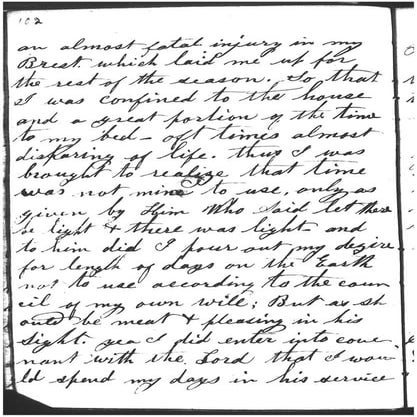 102
an almost fatal injury in my
Brest. which laid me up for
the rest of the season. So that
I was confined to the house
and a great portion of the time
to my bed - oft times almost
disparing of life. thus I was
brought to realize that time
was not mine to use, only as
given by Him Who Said let there
be light & there was light and
to him did I pour out my desire
for length of days on the Earth
not to use according to the coun
cil of my own will; But as sh
ould be meat & pleasing in his
Sight. yea I did enter into cove
nant with the Lord that I wou
ld spend my days in his service